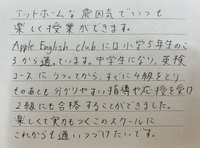 アットホームな雰囲気でいつも
楽しく授業ができます。
Apple English clubには小学5年生のこ
ろから通っています。中学生になり、英検
コースにうつってから、すぐに4級をとり
そのあとも分かりやすい指導や応援を受け
2級にも合格することができました。
楽しくて実力もつくこのスクールに
これからも通いつづけたいです。